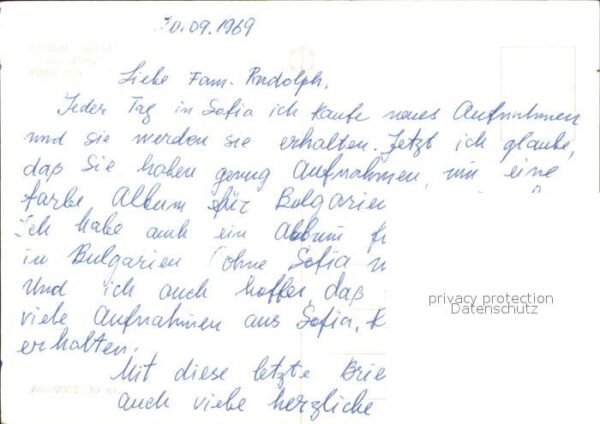 20.09.1969
Liebe Fam. Rudolph,
Jeder Tag in Sofia ich kaufe neues Aufnahmen
und sie werden sie erhalten. Jetzt ich glaube,
daß Sie haben genug Aufnahmen, um eine
farbe Album für Bulgarien
Ich habe auch ein Album
in Bulgarien (ohne Sofia
Und ich auch hoffe, daß
viele Aufnahmen aus Sofia,
erhalten.
Mit diese letzte Brie
auch viebe herzliche
privacy protection
Datenschutz